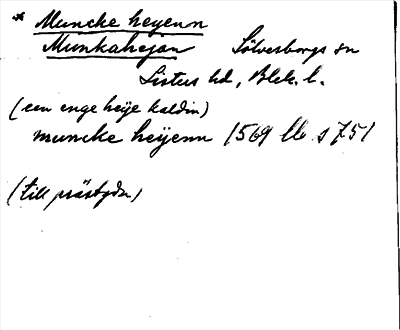 * Muncke heyenn
Munkahejan Sölvesborgs sn
Listers hd, Blek. l.
(een enge heije kaldin)
muncke heÿenn 1569 llb s 751
(till prästgden)